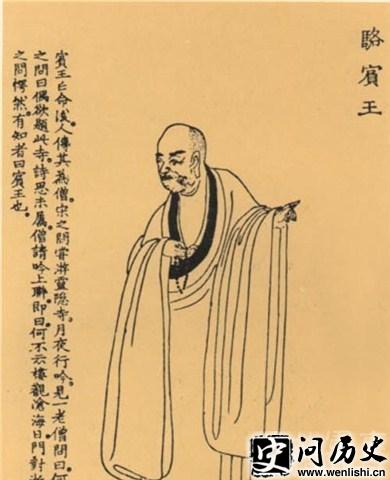 駱賓王
賓王亡命後人傳其為僧宋之問嘗游靈隱寺月夜行吟見一老僧問曰何
之問曰偶欲題此寺詩思未屬僧請吟上聯即曰何不云樓觀滄海日門對
之問愕然有知者曰賓王也
史问历史
www.wenlishi.cn